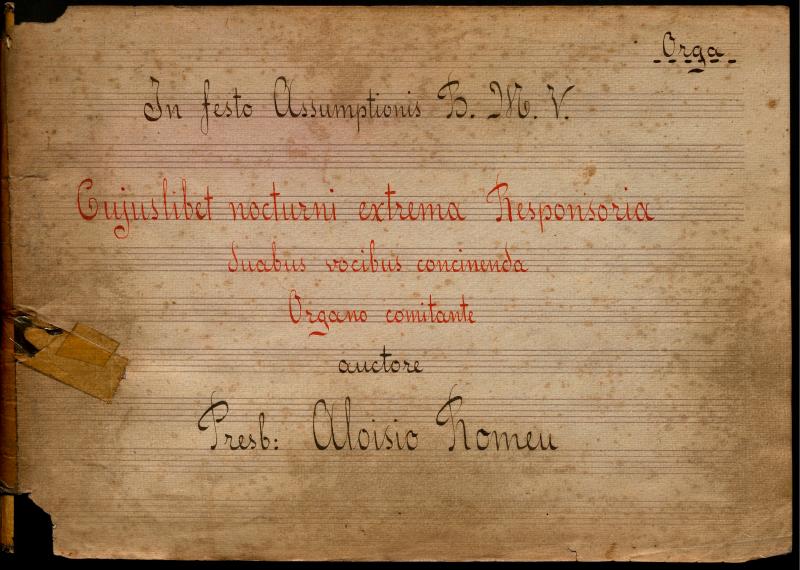 Orga
In festo Assumptionis B. M. V.
Cujuslibet nocturni extrema Responsoria
duabus vocibus concinenda
Organo comitante
auctore
Presb: Aloisio Romeu